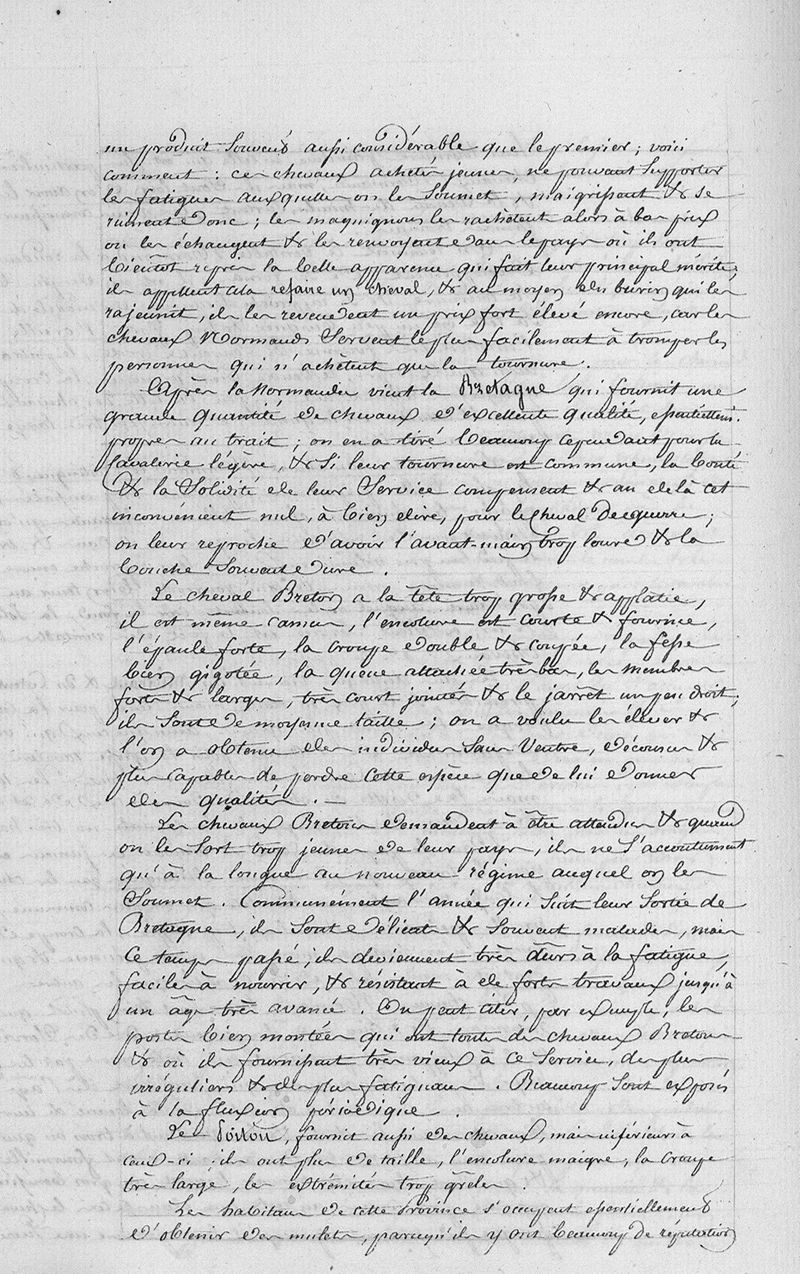 un produit souvent aussi considérable que le premier ; voici
comment : ces chevaux achetés jeunes, ne pouvant supporter
les fatigues auxquelles on les soumet, maigrissent & se
ruinent donc ; les maquignons les rachètent alors à bas prix
ou les échangent & les renvoyent dans le pays où ils ont
bientôt repris la belle apparence qui fait leur principal mérite ;
ils appellent cela refaire un cheval, & au moyen du burin qui les
rajeunit, ils les revendent un prix fort élevé encore, car les
chevaux Normands servent le plus facilement à tromper les
personnes qui n'achètent que la tournure.
Après la Normandie vient la Bretagne qui fournit une
grande quantité de chevaux d'excellente qualité, essentiellem.t
propres au trait ; on en a tiré beaucoup cependant pour la
Cavalerie légère, & si leur tournure est commune, la bonté
& la solidité de leur service compensent & au delà cet
inconvénient nul, à bien dire, pour le cheval de guerre ;
on leur reproche d'avoir l'avant-main trop lourd & la
bouche souvent dure.
Le cheval Breton a la tête trop grosse & applatie,
il est même camus, l'encolure est courte & fournie,
l'épaule forte, la croupe double & coupée, la fesse
bien gigotée, la queue attachée très bas, les membres
forts & larges, très court jointés & le jarret un peu droit ;
ils sont de moyenne taille ; on a voulu les élever &
l'on a obtenu des individus sans ventre, décousus &
plus capables de perdre cette espèce que de lui donner
des qualités. —
Les chevaux Bretons demandent à être attendus & quand
on les sort trop jeunes de leur pays, ils ne s'accoutument
qu'à la longue au nouveau régime auquel on les
soumet. Communément l'année qui suit leur sortie de
Bretagne, ils sont délicats & souvent malades, mais
ce temps passé, ils deviennent très durs à la fatigue,
faciles à nourrir, & résistant à de forts travaux jusqu'à
un âge très avancé. On peut citer, par exemple, les
postes bien montées qui ont toutes des chevaux Bretons
& où ils fournissent très vieux à ce service, des plus
irréguliers & des plus fatiguans. Beaucoup sont exposés
à la fluxion périodique.
Le Poitou, fournit aussi des chevaux, mais inférieurs à
ceux-ci ; ils ont plus de taille, l'encolure maigre, la croupe
très large, les extrémités trop grêles.
Les habitans de cette Province s'occupent essentiellement
d'obtenir des mulets, parcequ'ils y ont beaucoup de réputation